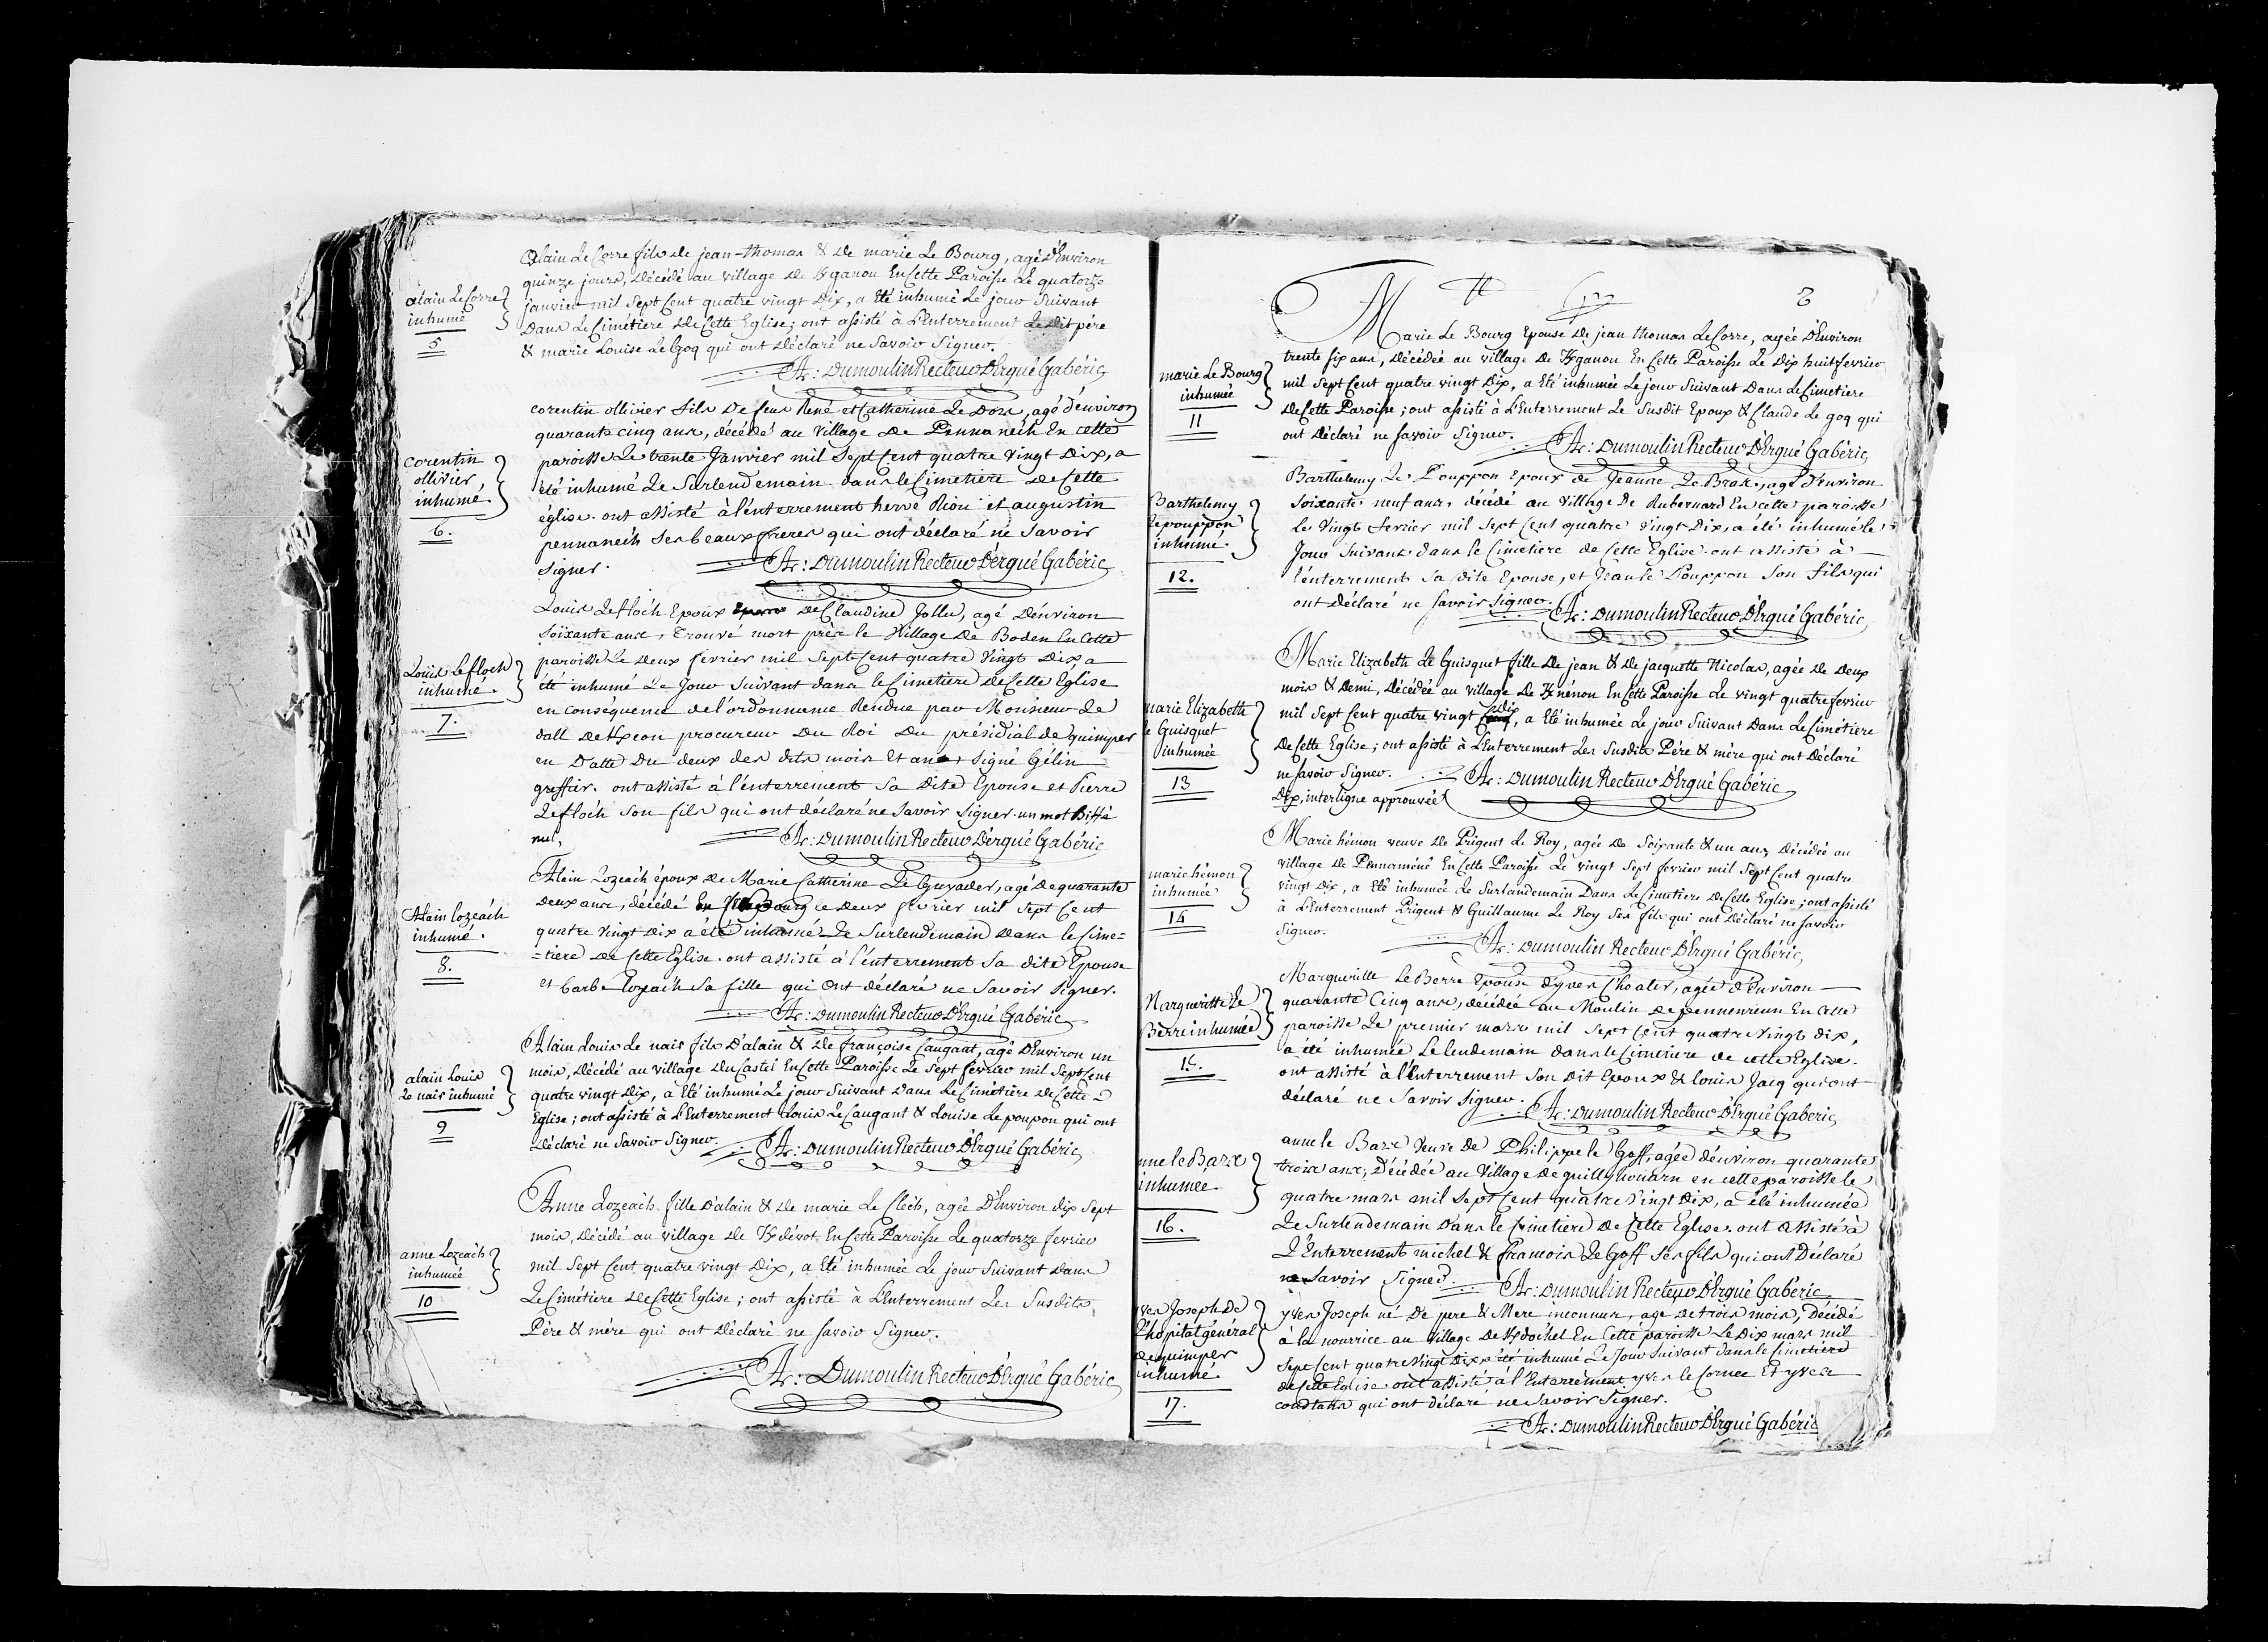 alain Le Corre
inhumé
5
Alain Le Corre fils de jean-thomas & de marie Le Bourg, agé d'Environ
quinze jours, décédé au village de Kganou En Cette Paroisse Le quatorze
janvier mil Sept Cent quatre vingt Dix, a Eté inhumé Le jour Suivant
Dans Le Cimétiere De Cette Eglise; ont assisté à L'Enterrement Le dit pére
& marie Louise Le Goq qui ont Déclaré ne Savoir Signer.
Al: Dumoulin Recteur D'Ergué Gabéric
Corentin
ollivier
inhumé
6.
Corentin ollivier fils de feus René et Catherine Le Dore, agé d'environ
quarante cinq ans, décédé au village de Pennanéch En Cette
paroisse Le trente Janvier mil Sept Cent quatre vingt Dix, a
été inhumé Le Surlendemain dans le Cimetiere de Cette
église. ont assisté à l'enterrement hervé Riou et augustin
pennanéch Ses beaux freres qui ont déclaré ne Savoir
Signer.
Al: Dumoulin Recteur D'Ergué Gabéric
Louis Le floch
inhumé.
7.
Louis Le floc'h Epoux De Claudine Jollu, agé d'environ
Soixante ans, Trouvé mort près le Village De Boden En Cette
paroisse Le Deux fevrier mil Sept Cent quatre vingt Dix a
été inhumé Le Jour Suivant dans le Cimetiere De Cette Eglise
en conséquence de l'ordonnance Rendue par Monsieur de
dall De Kgeon procureur Du Roi Du présidial de quimper
en Datte Du deux des dits mois Et an, Signé Gélin
greffier. ont assisté à l'enterrement Sa Dite Epouse et Pierre
Le floc'h Son fils qui ont déclaré ne Savoir Signer. un mot Biffé
nul,
Al: Dumoulin Recteur D'Ergué Gabéric
Alain Lozeách
inhumé.
8.
Alain Lozeach époux de Marie Catherine Le Guyader, agé de quarante
deux ans, décédé Le deux fevrier mil Sept Cent
quatre vingt Dix a été inhumé Le Surlendemain Dans le Cime=
=tiere De Cette Eglise. ont assisté à l'enterrement Sa dite Epouse
et Barbe Lozeách Sa fille qui ont déclaré ne Savoir Signer.
Al: Dumoulin Recteur D'Ergué Gabéric
alain Louis
Le nair inhumé
9
Alain Louis Le nair fils d'alain & de françoise Caugant, agé d'Environ un
mois, Décédé au village Du Castel En Cette Paroisse Le Sept fevrier mil Sept Cent
quatre vingt Dix, a Eté inhumé Le jour Suivant Dans Le Cimétiere De Cette
Eglise; ont assisté à L'Enterrement Louis Le Caugant & Louise Le poupon qui ont
Déclaré ne Savoir Signer.
Al: Dumoulin Recteur D'Ergué Gabéric
anne Lozeach
inhumée
10
Anne Lozeach fille d'alain & de marie Le Clech, agée d'Environ dix Sept
mois, Décédé au village de Kdévot En Cette Paroisse Le quatorze fevrier
mil Sept Cent quatre vingt Dix, a Eté inhumée Le jour Suivant Dans
Le Cimétiere De Cette Eglise; ont assisté à L'Enterrement Les Susdits
Père & mére qui ont Déclaré ne savoir Signer.
Al: Dumoulin Recteur D'Ergué Gabéric
marie Le Bourg
inhumée
11
Marie Le Bourg Epouse de jean thomas Le Corre, agée d'Environ
trente six ans, Décédée au village de Kganou En Cette Paroisse Le Dix huit fevrier
mil Sept Cent quatre vingt Dix, a Eté inhumée Le jour Suivant Dans Le Cimetiere
De Cette Paroisse; ont assisté à L'Enterrement Le Susdit Epoux & Claude Le goq qui
ont Déclaré ne savoir Signer.
Al: Dumoulin Recteur D'Ergué Gabéric
Barthelemy
Le pouppon
inhumé
12.
Barthelemy Le Pouppon Epoux de Jeanne Le Bras, agé d'environ
Soixante neuf ans, décédé au Village De Rubernard En cette paroisse
le Vingt fevrier mil Sept Cent quatre Vingt Dix, a été inhumé le
Jour Suivant dans le Cimetiere de Cette Eglise. ont assisté à
l'enterrement Sa dite Epouse, et Jean Le Pouppon Son fils qui
ont déclaré ne savoir Signer.
Al: Dumoulin Recteur D'Ergué Gabéric
marie Elizabeth
le Guisquet
inhumée
13
Marie Elizabeth Le Guisquet fille de jean & de jacquette Nicolas, agée de Deux
mois & Demi, Décédée au village De Knénou En Cette Paroisse Le vingt quatre fevrier
mil Sept Cent quatre vingt dix, a Eté inhumée Le jour Suivant Dans Le Cimétiere
De Cette Eglise; ont assisté à L'Enterrement Les Susdits Pére & mére qui ont Déclaré
ne savoir Signer.
Dix, interligne approuvée
Al: Dumoulin Recteur D'Ergué Gabéric
marie hémon
inhumée
14
Marie hémon veuve de Prigent Le Roy, agée de Soixante & un ans, Décédée au
village De Pennaméné En Cette Paroisse Le vingt Sept fevrier mil Sept Cent quatre
vingt Dix, a Eté inhumée Le Surlendemain Dans Le Cimetiere De Cette Eglise; ont assisté
à L'Enterrement Prigent & Guillaume Le Roy Ses fils qui ont Déclaré ne savoir
Signer.
Al: Dumoulin Recteur D'Ergué Gabéric
Margueritte Le
Berre inhumée
15.
Margueritte Le Berre Epouse d'yves Choaler, agée d'Environ
quarante Cinq ans, décédée au Moulin de pennenreun En Cette
paroisse Le premier mars mil Sept Cent quatre vingt dix,
a été inhumée Le lendemain dans le Cimetiere de cette Eglise.
ont assisté à l'Enterrement Son dit Epoux & Louis Jacq qui ont
déclaré ne Savoir Signer.
Al: Dumoulin Recteur D'Ergué Gabéric
nne le Bars
inhumée
16.
anne le Bars Veuve De Philippe le Goff, agée d'environ quarante
trois ans, Décédée au Village de quillyhouarn en cette paroisse le
quatre mars mil Sept Cent quatre Vingt Dix, a été inhumée
Le Surlendemain Dans le Cimetiere De Cette Eglise. ont assisté à
L'Enterrement michel & francois Le Goff Ses fils qui ont Déclaré
ne Savoir Signer.
Al: Dumoulin Recteur D'Ergué Gabéric
yves Joseph De
l'hopital général
de quimper
inhumé.
17.
yves Joseph né De pere & Mere inconnus, agé de trois mois, Décédé
à la nourrice au Village De Kdoc'hel En Cette paroisse Le Dix mars mil
Sept Cent quatre Vingt Dix a été inhumé Le Jour Suivant dans le Cimetiere
de Cette Eglise. ont assisté à l'Enterrement yves le Cornec Et yves
coustans qui ont déclaré ne Savoir Signer.
Al: Dumoulin Recteur D'Ergué Gabéric